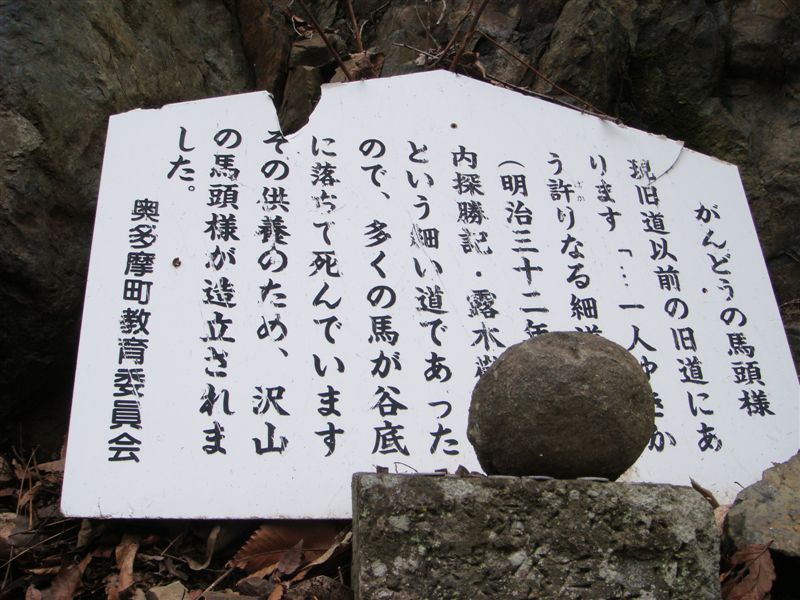 がんどうの馬頭様
現旧道以前の旧道にあ
ります「…一人ゆ か
う許りなる細
ばか
(明治三十二年
内探勝記・露木
という細い道であった
ので、多くの馬が谷底
に落ちて死んでいます
その供養のため、沢山
の馬頭様が造立されま
した。
奥多摩町教育委員会